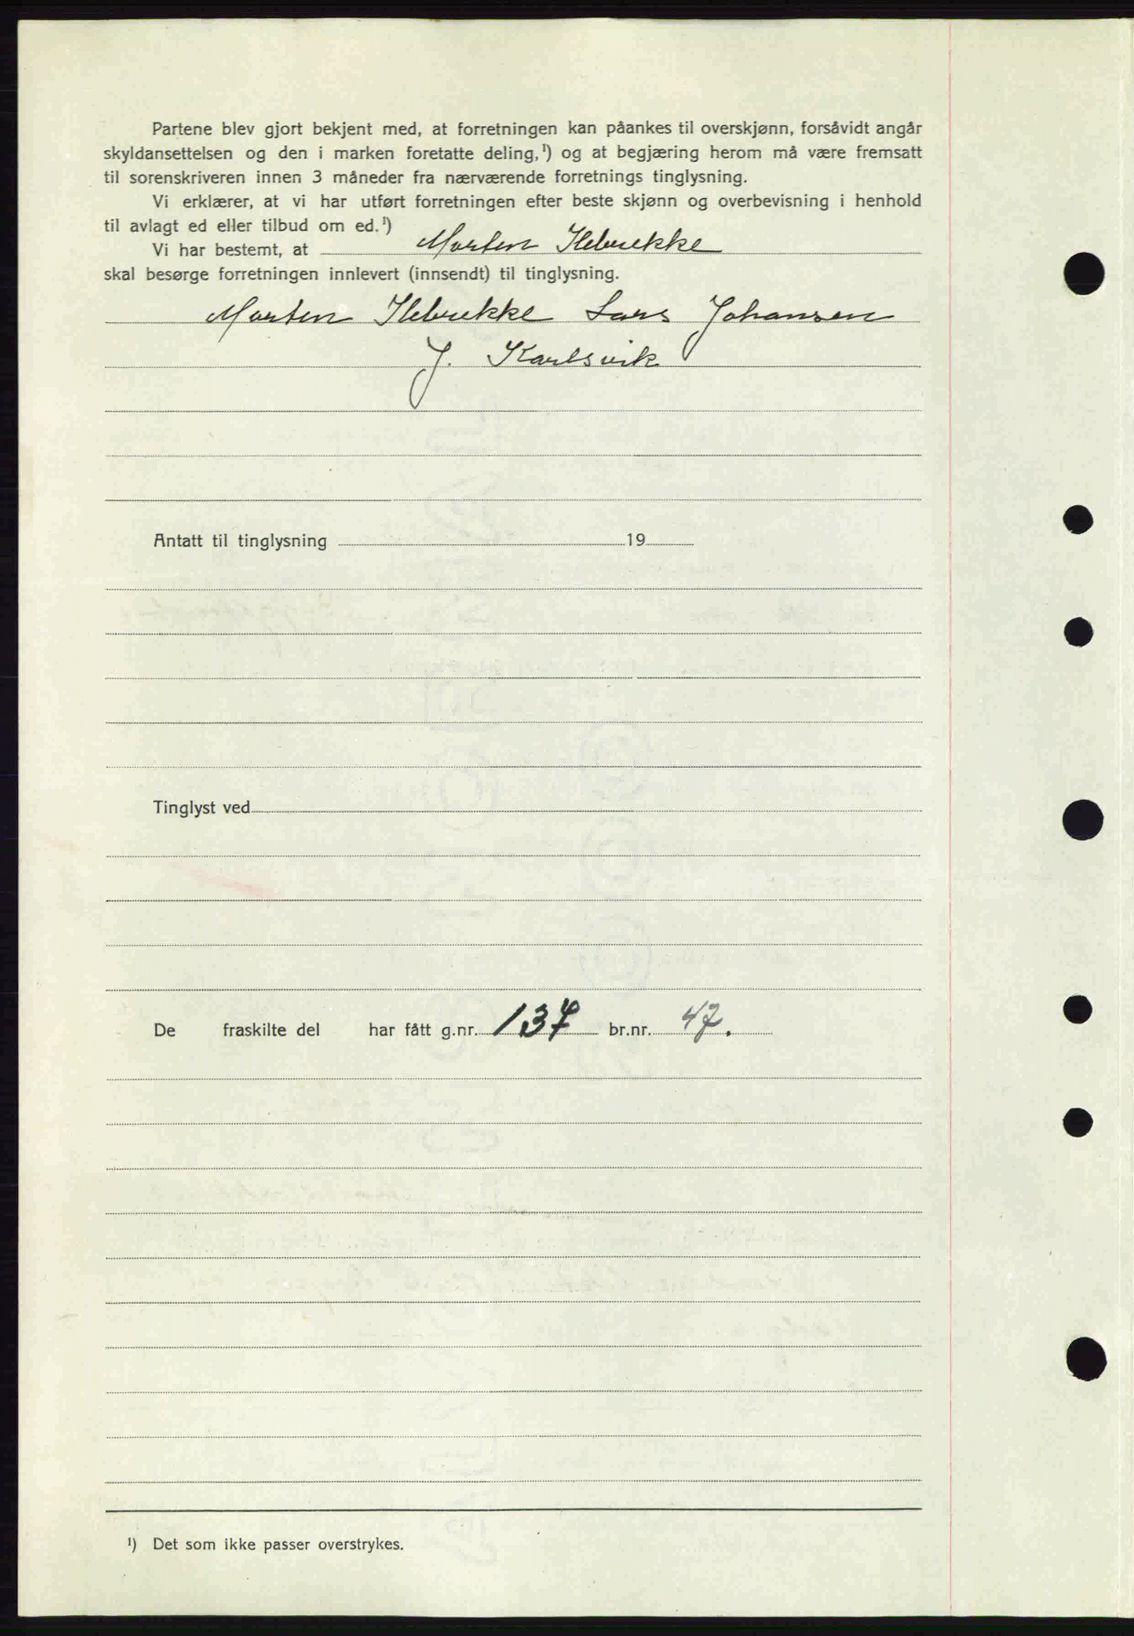 Partene blev gjort bekjent med, at forretningen kan påankes til overskjønn, forsåvidt angår
skyldansettelsen og den i marken foretatte deling,¹) og at begjæring herom må være fremsatt
til sorenskriveren innen 3 måneder fra nærværende forretnings tinglysning.
Vi erklærer, at vi har utført forretningen efter beste skjønn og overbevisning i henhold
til avlagt ed eller tilbud om ed.¹)
Vi har bestemt, at Morten Ilebrekke
skal besørge forretningen innlevert (innsendt) til tinglysning.
Morten Ilebrekke Lars Johansen
J. Karlsvik
Antatt til tinglysning 19
Tinglyst ved
De fraskilte del har fått g.nr. 137 br.nr. 47.
¹) Det som ikke passer overstrykes.